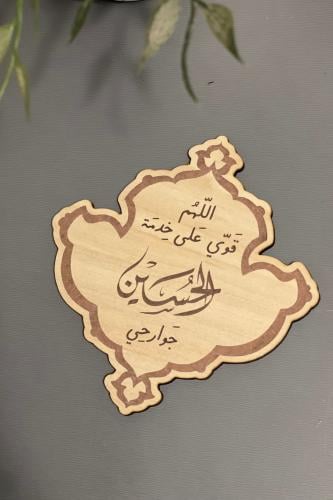 اللّهُم
قَوّي عَلى خِدمَة
الحُسَين
جَوارحِي